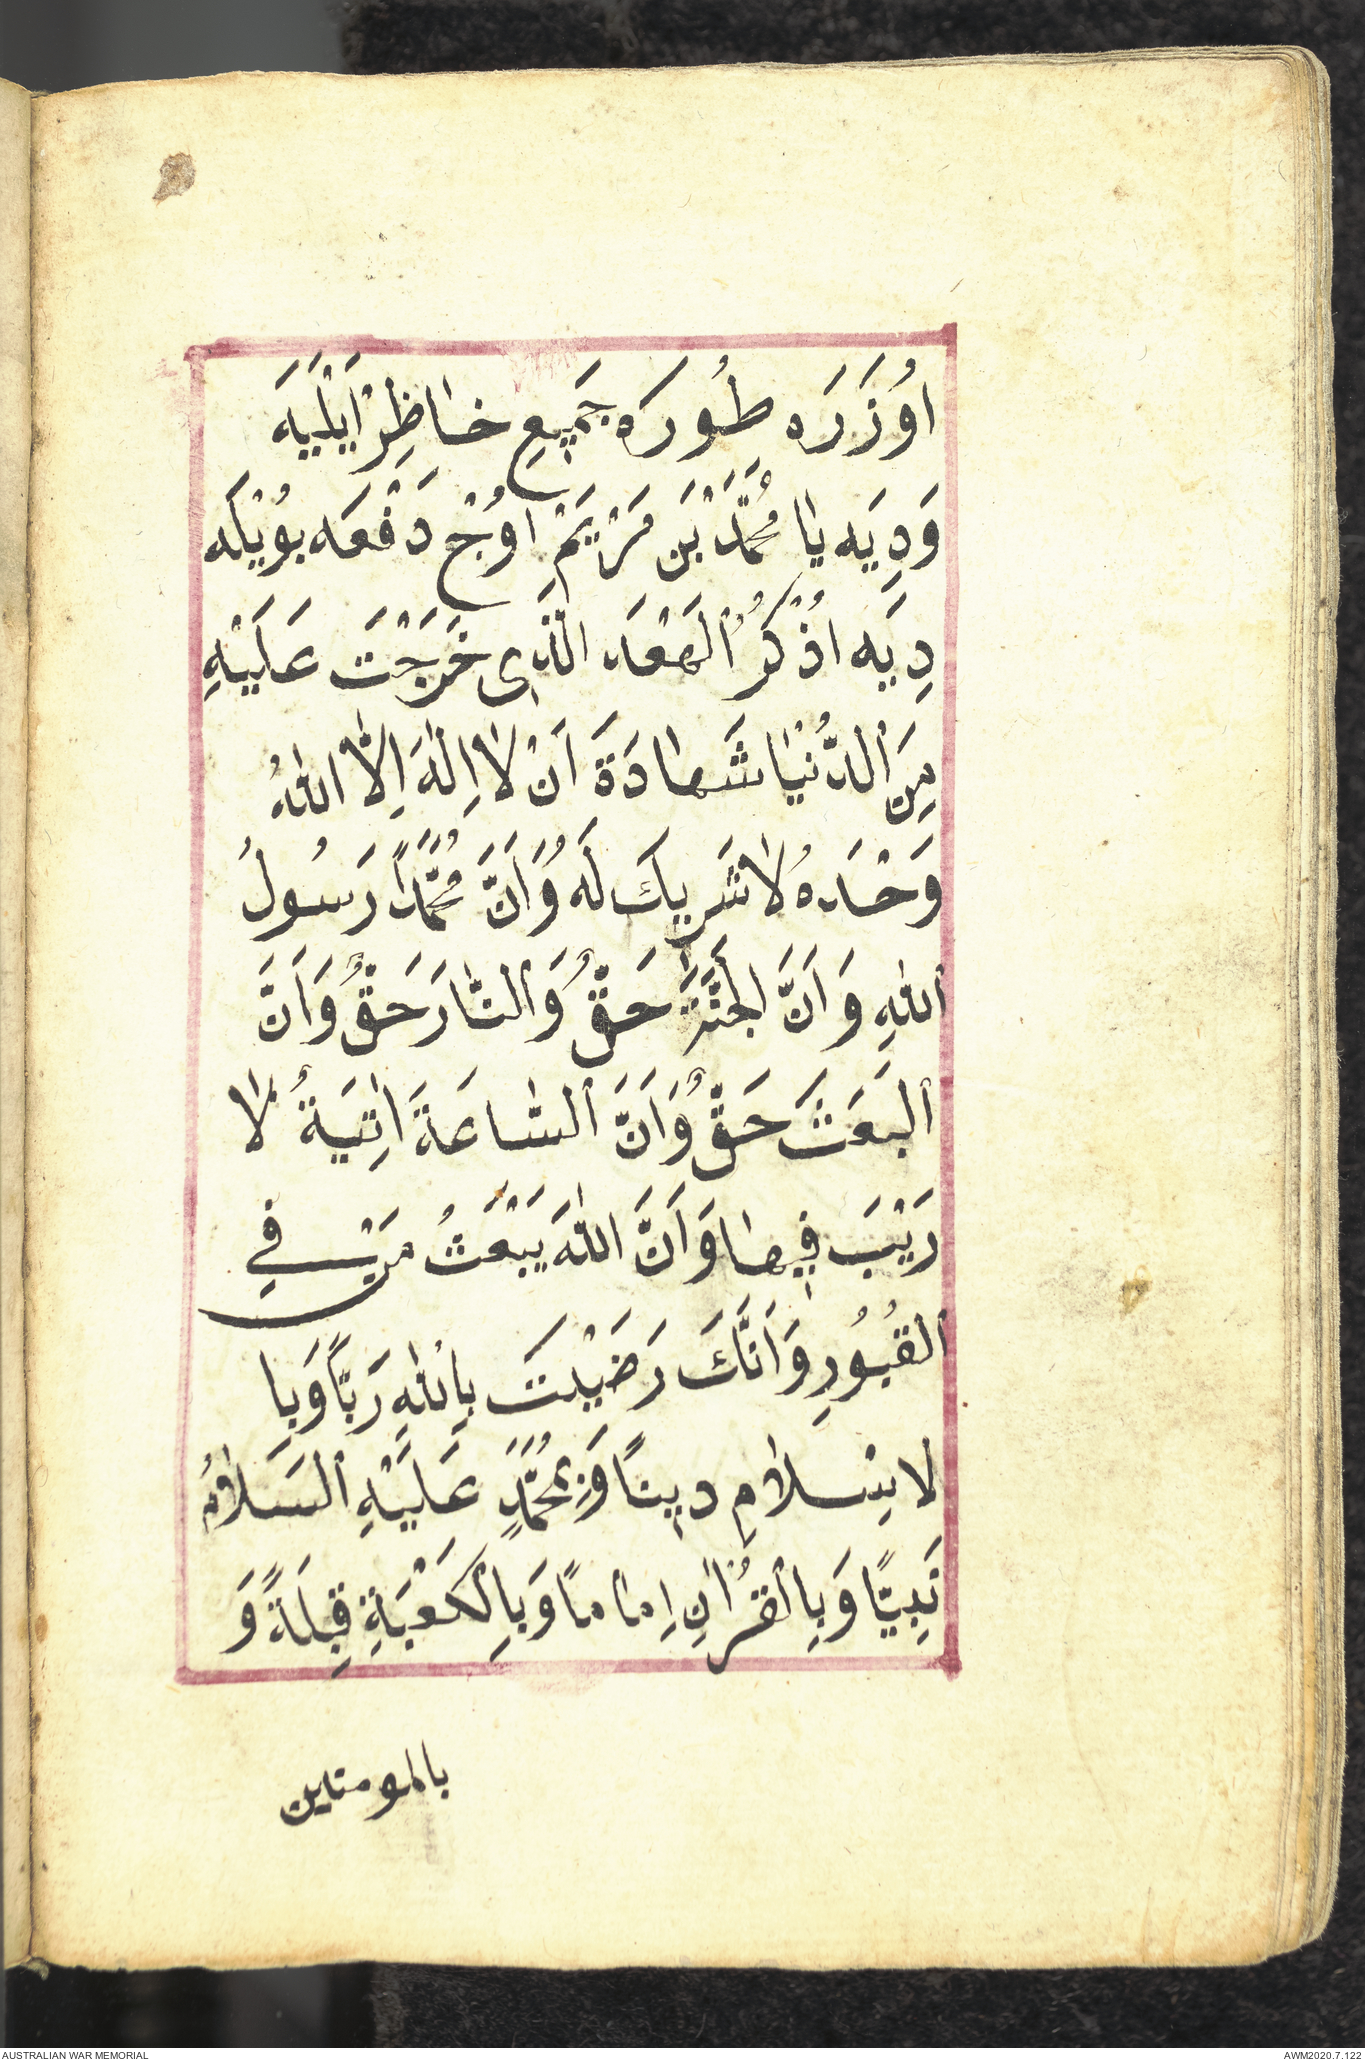 اوُزَرَه طُورَه جَمِيعِ خٰاظِرْ اَيْلَيَه
وَدِيَه يٰا مُحَمَّدْ بَنْ مَرْيَمْ اوُجْ دَفْعَه بوُيْلَه
دِيَه اُذْكُرُ ٱلْهَعْدَ الَّذِى خَرَجْتَ عَلَيْهِ
مِنَ ٱلدُّنْيٰا شَهٰادَةَ اَنْ لٰا اِلٰهَ اِلَّا اللّٰهُ
وَحْدَهُ لٰا شَرِيكَ لَهُ وَاَنَّ مُحَمَّدًا رَسُولُ
ٱللّٰهِ وَاَنَّ الْجَنَّةَ حَقٌّ وَٱلنّٰارَ حَقٌّ وَاَنَّ
ٱلْبَعَثَ حَقٌّ وَاَنَّ ٱلسّٰاعَةَ اٰتِيَةٌ لٰا
رَيْبَ فِيهٰا وَاَنَّ اللّٰهَ يَبْعَثُ مَنْ فِي
ٱلقُبُورِ وَاَنَّكَ رَضَيْتَ بِاللّٰهِ رَبًّا وَبِا
لاسْلٰامِ دِينًا وَبِمُحَمَّدٍ عَلَيْهِ ٱلسَلٰامُ
نَبِيًّا وَبِالْقُرْاٰنِ اِمٰامًا وَبِالْكَعْبَةِ قِبلَةً وَ
بالمومنين
AUSTRALIAN WAR MEMORIAL
AWM2020.7.122